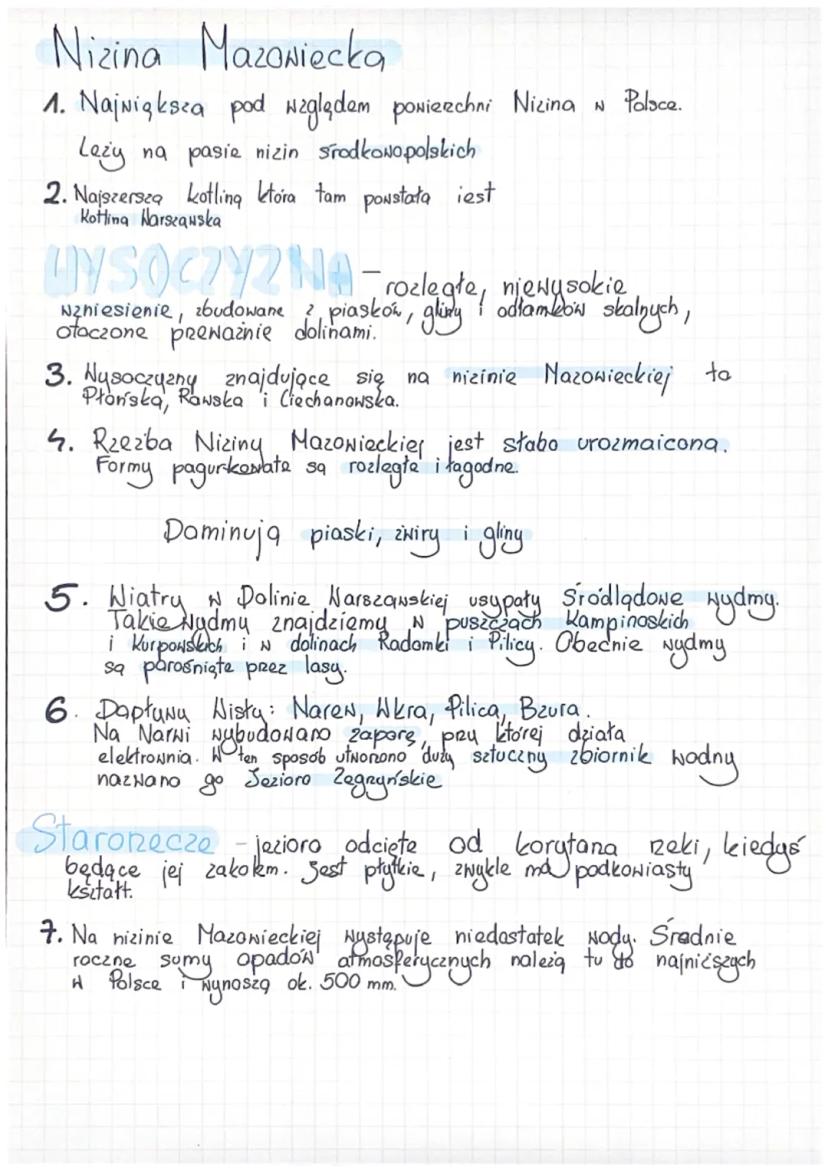 Nizina Mazowiecka
1. Największa pod względem powierzchni Nizina w Polsce.
Leży na pasie nizin środkowopolskich
2. Najszerszą kotliną która tam powstała iest
Kotlina Warszawska
WYSOCZYZNA - rozległe, niewysokie
wzniesienie, zbudowane z piasków, gliny i odłamków skalnych,
otoczone przeważnie dolinami.
3. Wysoczyzny znajdujące się na nizinie Mazowieckiej to
Płońska, Rawska i Ciechanowska.
4. Rzeźba Niziny Mazowieckiej jest słabo urozmaicona.
Formy pagurkowate są rozległe i łagodne.
Dominują piaski, żwiry i gliny
5. Wiatry w Dolinie Warszawskiej usypały Śródlądowe wydmy.
Takie wydmy znajdziemy w puszczach Kampinoskich
i Kurpowskich i w dolinach Radomki i Pilicy. Obecnie wydmy
są porośnięte przez lasy.
6. Dopływy Wisły: Narew, Wkra, Pilica, Bzura.
Na Narwi wybudowano zaporę, przy której działa
elektrownia. W ten sposób utworzono duży sztuczny zbiornik wodny
nazwano go Jezioro Zegrzyńskie
Starorzecze - jezioro odcięte od koryta rzeki, kiedyś
będące jej zakolem. Jest płytkie, zwykle ma podkowiasty
kształt.
7. Na nizinie Mazowieckiej występuje niedostatek wody. Średnie
roczne sumy opadów atmosferycznych należą tu do najniższych
w Polsce i wynoszą ok. 500 mm.